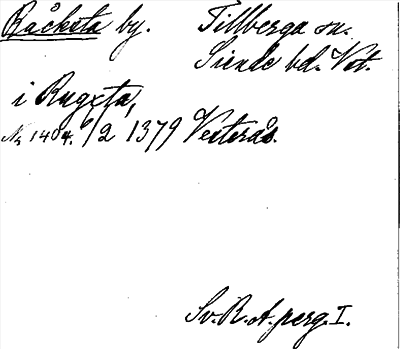 Råcksta by. Tillberga sn.
Siende hd. Vst.
i Rugxta,
No 1404. 6/2 1379 Vesterås.
Sv. R. A. perg. I.